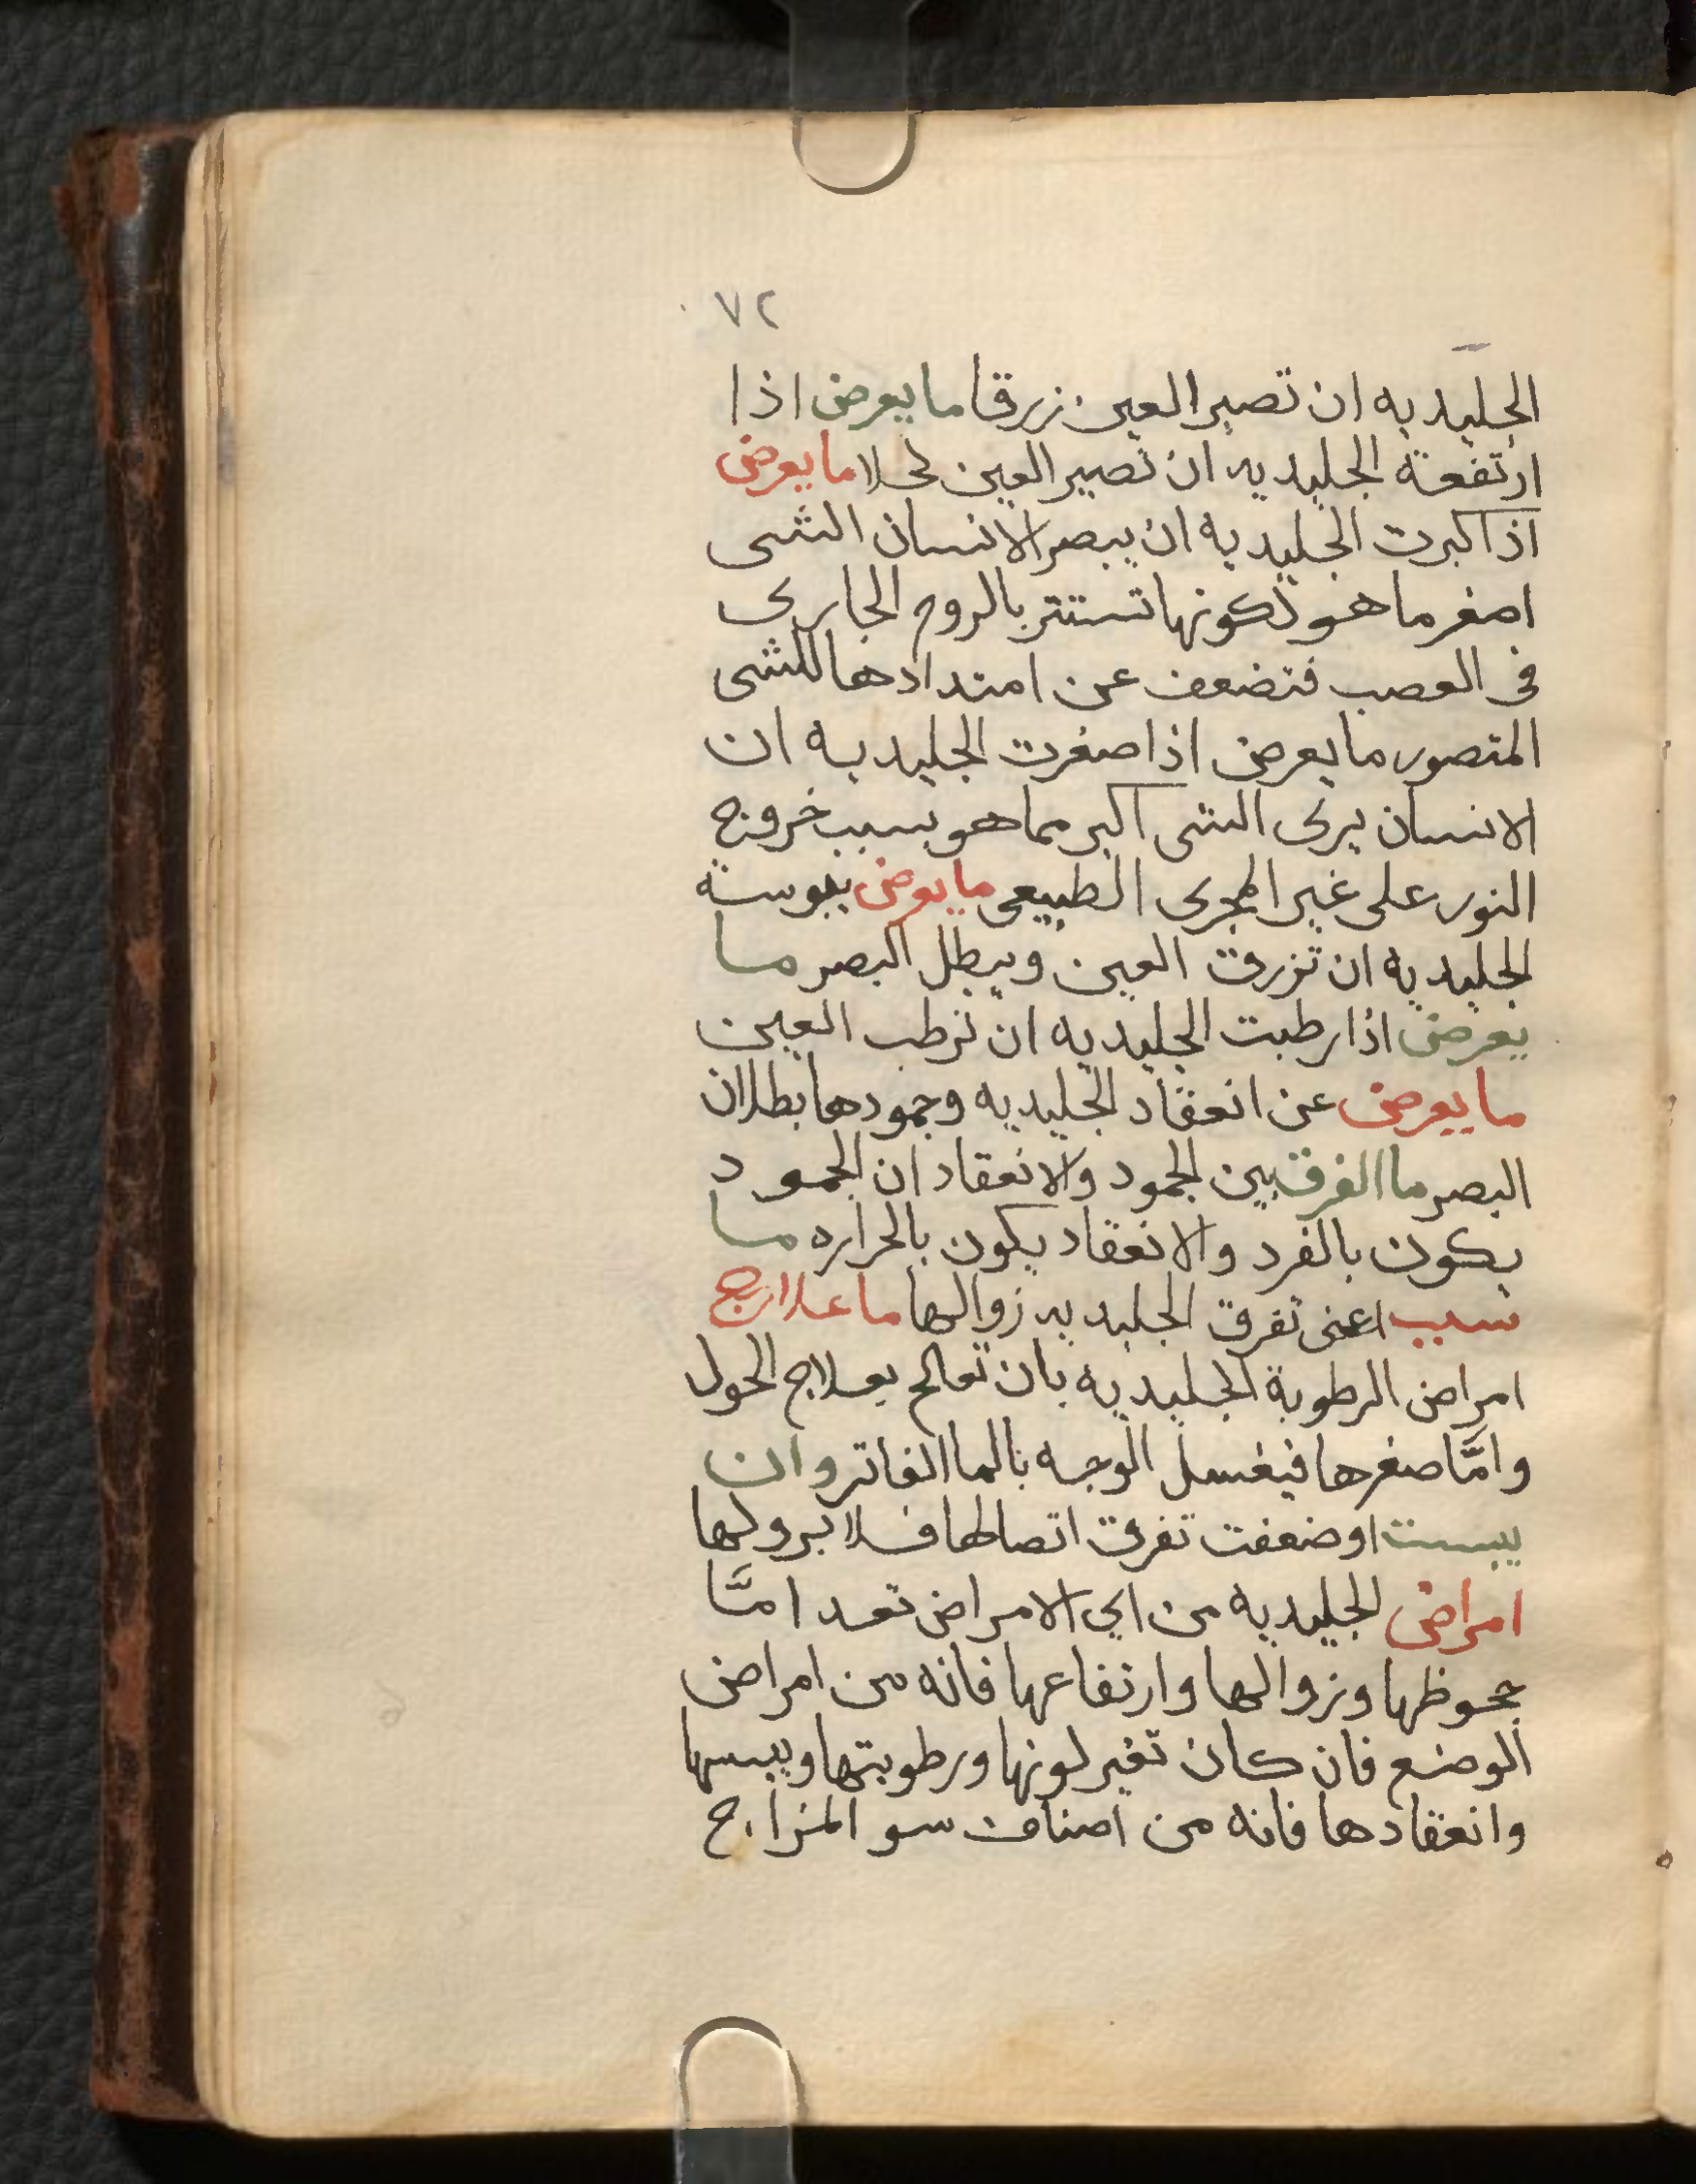 ٧٢
الجليديه ان تصير العين زرقا ما يعرض اذا
ارتفعة الجليديه ان تصير العين كحلا ما يعرض
اذا كبرت الجليديه ان يبصر الانسان الشى
اصغر ما هو لكونها تستتر بالروح الجارى
فى العصب فتضعف عن امتدادها للشى
المتصور ما يعرض اذا صغرت الجليديه ان
الانسان يرى الشى اكبر مما هو بسبب خروج
النور على غير المجرى الطبيعى ما يعرض يبوسة
الجليديه ان تزرق العين ويبطل البصر ما
يعرض اذا رطبت الجليديه ان ترطب العين
ما يعرض عن انعقاد الجليديه وجمودها بطلان
البصر ما الفرق بين الجمود والانعقاد ان الجمود
يكون بالفرد والانعقاد يكون بالحراره ما
سبب اعنى تفرق الجليديه زوالها ما علاج
امراض الرطوبة الجليديه بان تعالج بعلاج الحول
وامّا صغرها فيغسل الوجه بالما الفاتر وان
يبست اوضعفت تفرق اتصالها فلا برو لها
امراض الجليديه من اي الامراض تعد امّا
جحوظها وزوالها وارتفاعها فانه من امراض
الوضع فان كان تغير لونها ورطوبتها ويبسها
وانعقادها فانه من اصناف سو المزاج